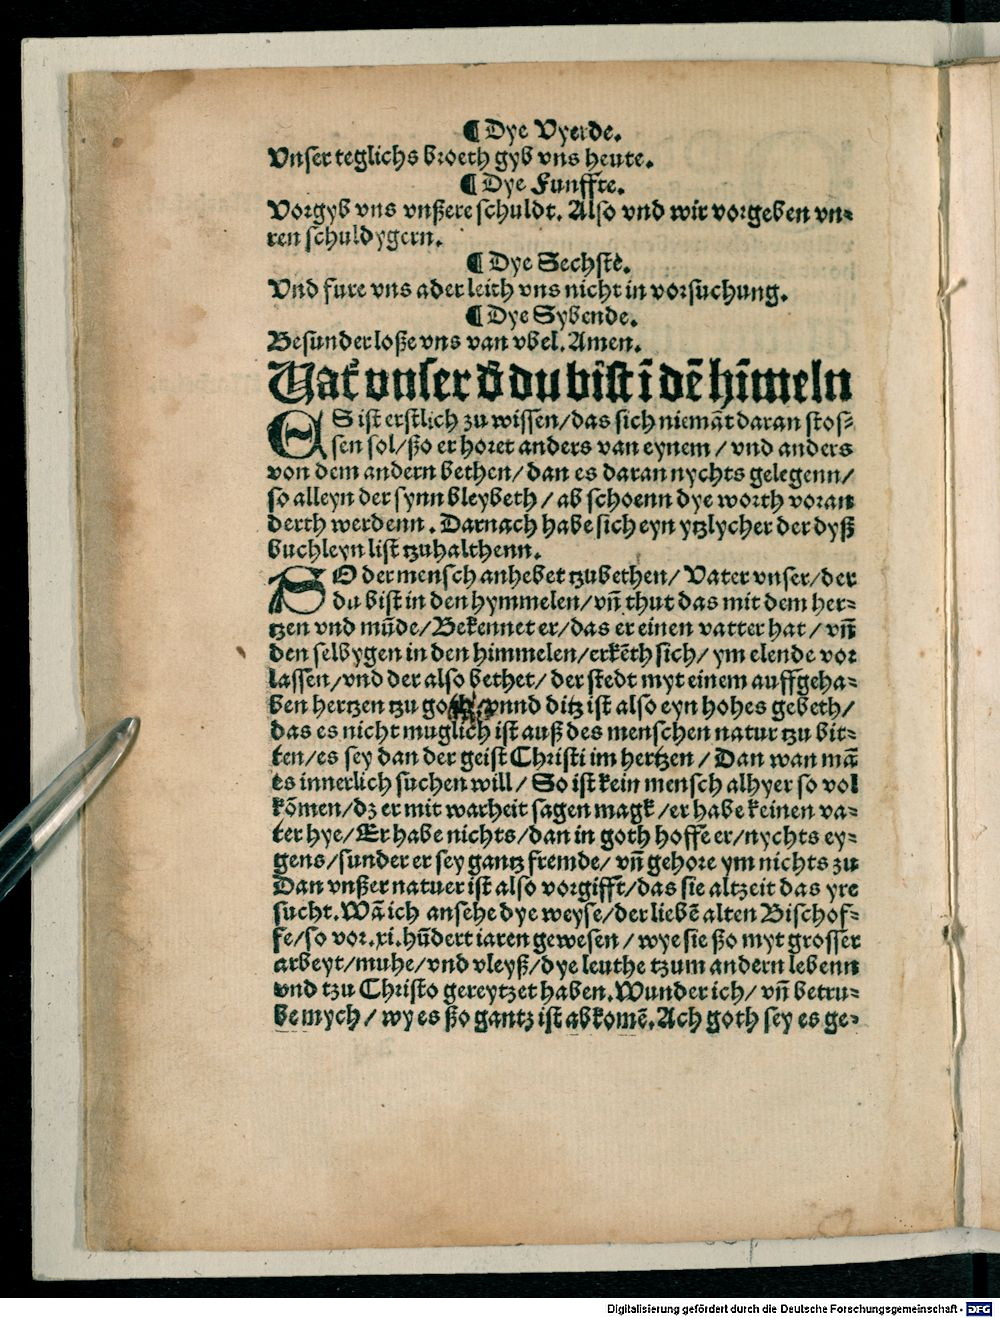 ¶ Dye Vyerde.
Vnser teglichs broeth gyb vns heute.
¶ Dye Funffte.
Vorgyb vns vnßere schuldt. Also vnd wir vorgeben vn⸗
ren schuldygern.
¶ Dye Sechstē.
Vnd fure vns ader leith vns nicht in vorsuchung.
¶ Dye Sybende.
Besunder loße vns van vbel. Amen.
Vat͛ vnser d͛ du bist ī dē hīmeln
ES ist erstlich zu wissen/das sich niemāt daran stos⸗
sen sol/ßo er horet anders van eynem/vnd anders
von dem andern bethen/dan es daran nychts gelegenn/
so alleyn der synn bleybeth/ab schoenn dye worth voran
derth werdenn. Darnach habe sich eyn ytzlycher der dyß
buchleyn list tzuhalthenn.
SO der mensch anhebet tzubethen/Vater vnser/der
du bist in den hymmelen/vn̄ thut das mit dem her⸗
tzen vnd mūde/Bekennet er/das er einen vatter hat/vn̄
den selbygen in den himmelen/erkēth sich/ym elende vor
lassen/vnd der also bethet/der stedt myt einem auffgeha⸗
ben hertzen tzu goth/vnnd ditz ist also eyn hohes gebeth/
das es nicht muglich ist auß des menschen natur tzu bit⸗
ten/es sey dan der geist Christi im hertzen/Dan wan mā
es innerlich suchen will/So ist kein mensch alhyer so vol
kōmen/dz er mit warheit sagen magk/er habe keinen va⸗
ter hye/Er habe nichts/dan in goth hoffe er/nychts ey⸗
gens/sunder er sey gantz fremde/vn̄ gehore ym nichts zu
Dan vnßer natuer ist also vorgifft/das sie altzeit das yre
sucht. Wā ich ansehe dye weyse/der liebē alten Bischof⸗
fe/so vor.xi.hūdert iaren gewesen/wye sie ßo myt grosser
arbeyt/muhe/vnd vleyß/dye leuthe tzum andern lebenn
vnd tzu Christo gereytzet haben. Wunder ich/vn̄ betru⸗
be mych/wy es ßo gantz ist abkomē. Ach goth sey es ge⸗
Digitalisierung gefördert durch die Deutsche Forschungsgemeinschaft - DFG